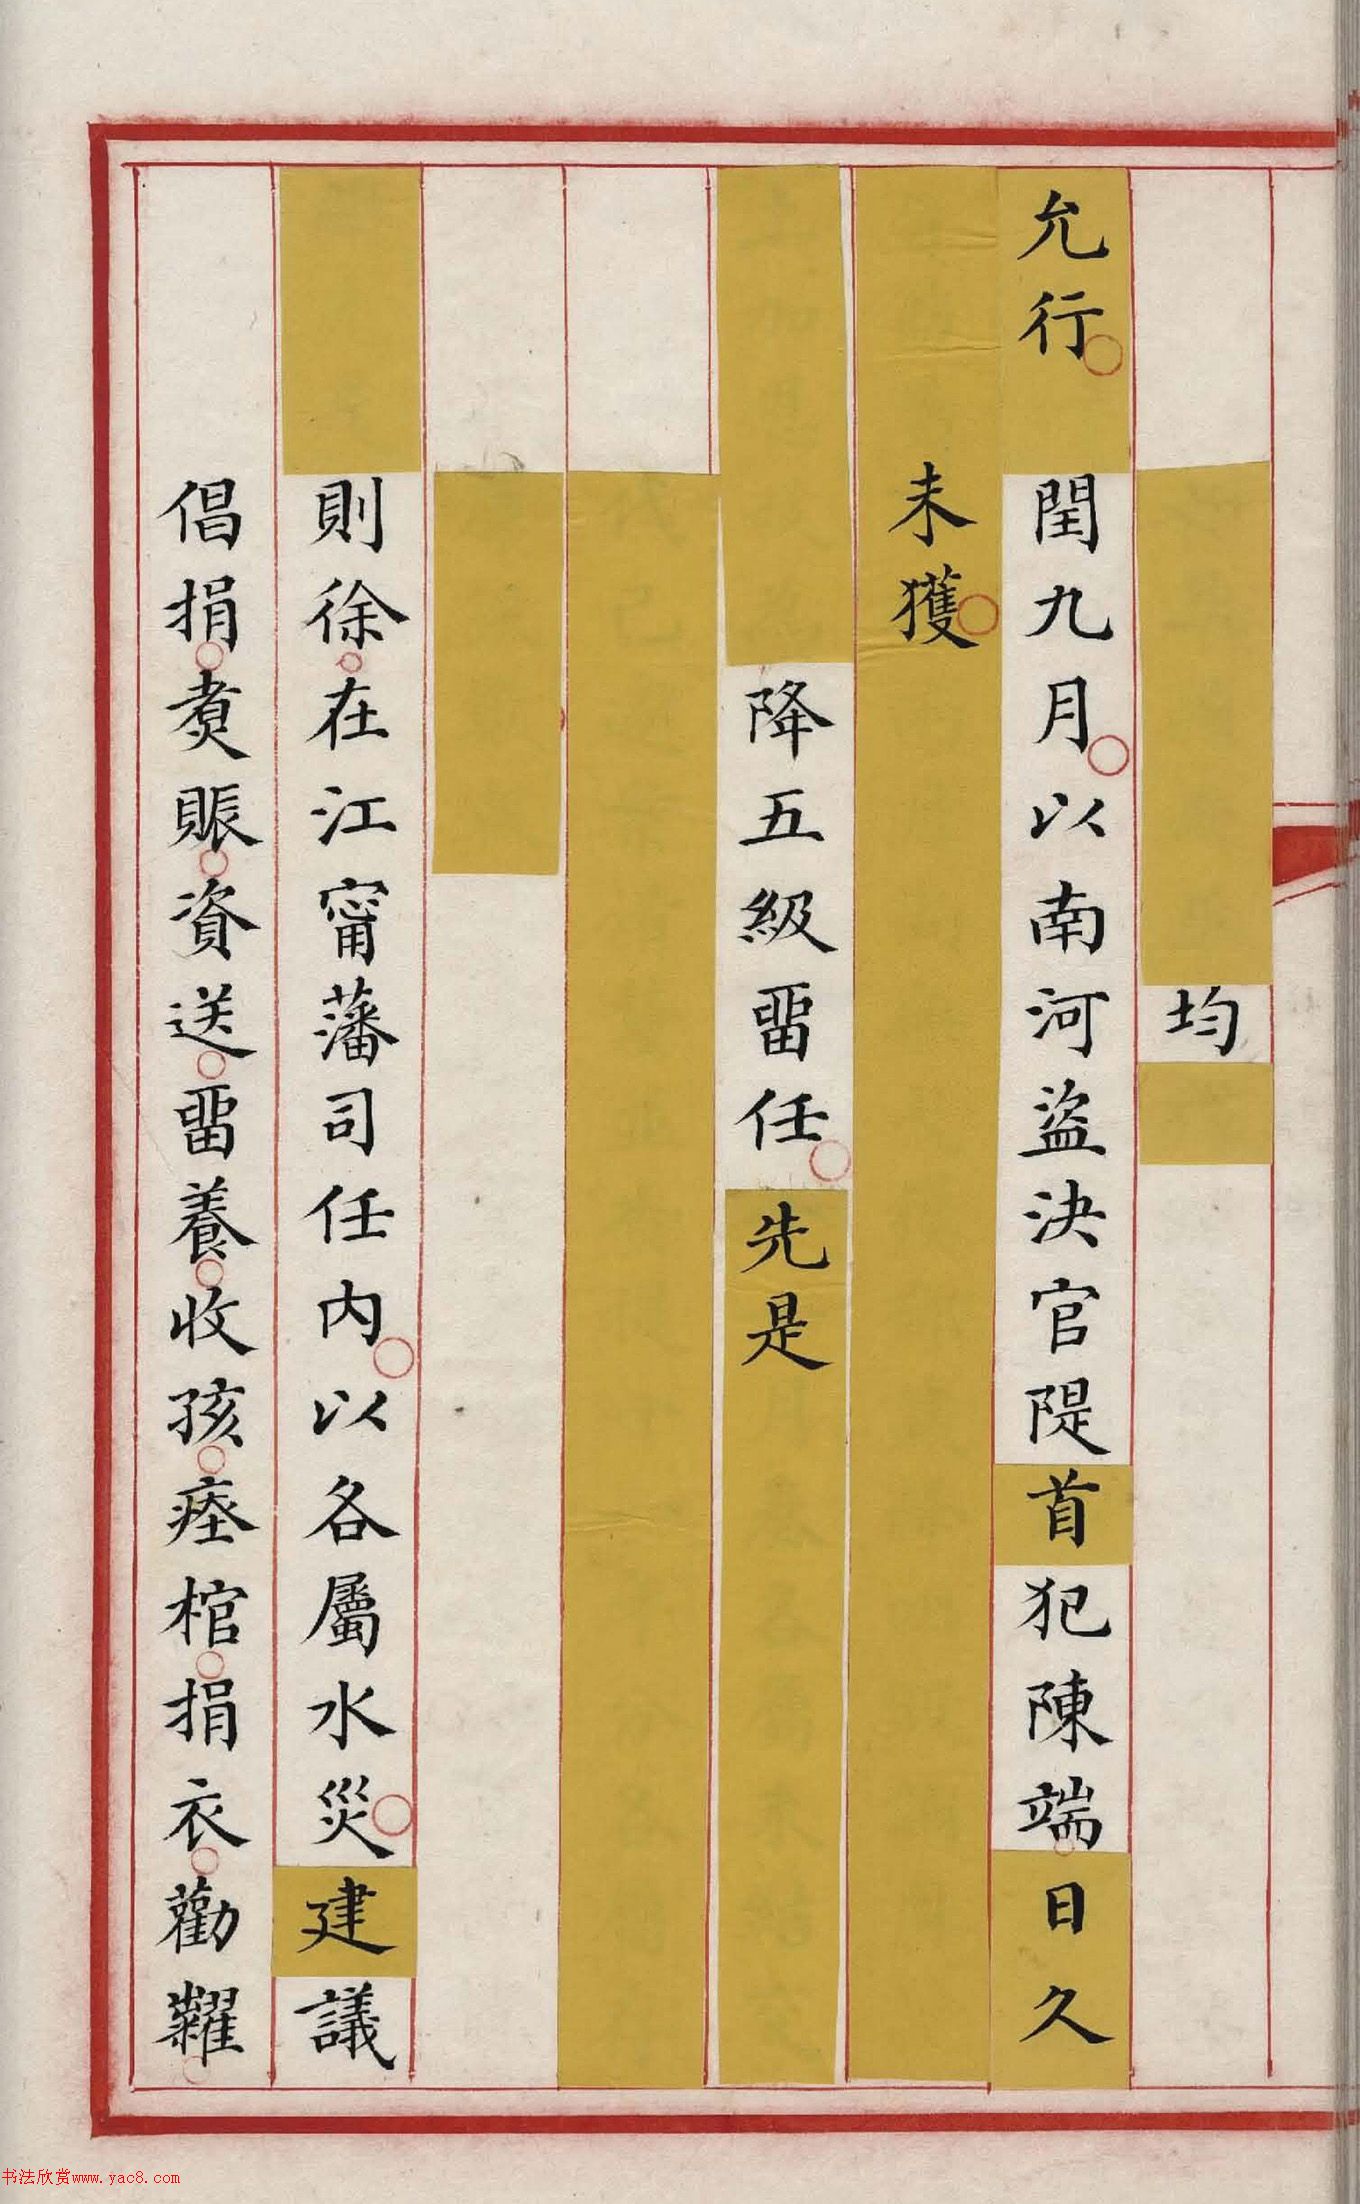 均
允行閏九月以南河盜決官隄首犯陳端日久
未獲
降五級畱任先是
則徐在江甯藩司任内以各屬水災建議
倡捐煑賑資送畱養收孩瘞棺捐衣勸糶
书法欣赏www.yac8.com